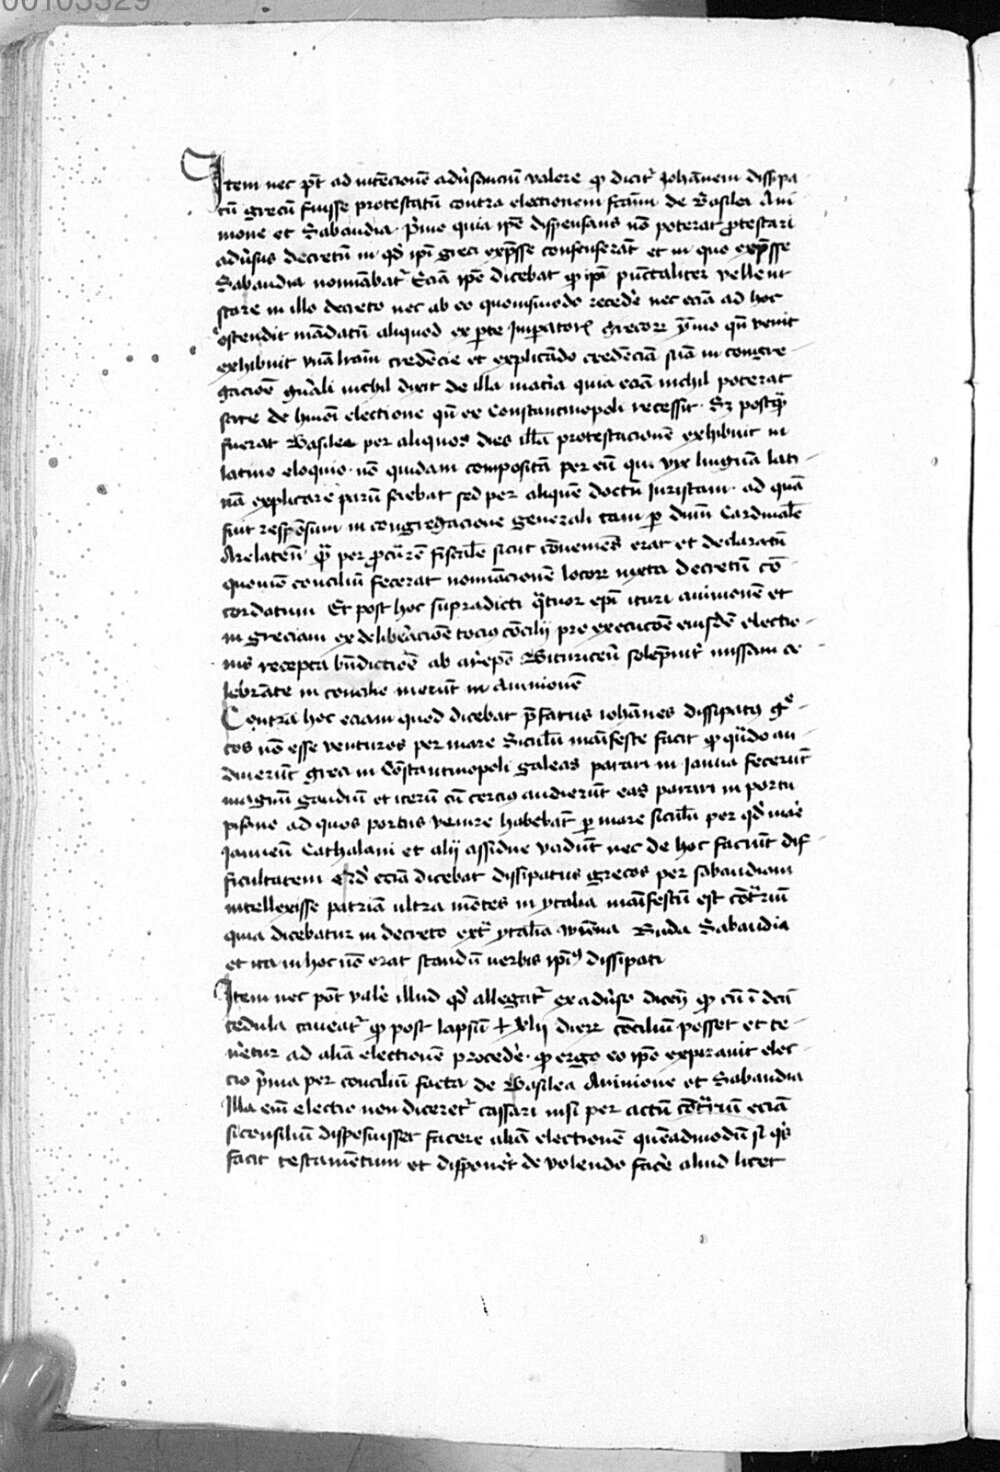 00103329
Item nec pt̄ ad intēcionē adūsanciū valere qꝫ dicit᷑ Johānem dissipa-
tū grecū fuisse protestatū contra electionem fcām de Basilea Avi
nione et Sabaudia. p̄mo quia ip̄e dispensans nō poterat ꝓtestari
adūsus decretū in qd̄ ip̄i greci exp̄sse consenserāt et in quo exp̄sse
Sabaudia nominābat᷑ Eciā ip̄e dicebat qꝫ ip̄i pūctaliter vellent
stare in illo decreto nec ab eo quouismodo recedē nec eciā ad hoc
ostendit mādatū aliquod ex p̲te Imp̲atoris grecorꝝ ymo qn̄ venit
exhibuit vnā lr̄am credēcie et explicādo credēciā suā in congre-
gacioē gnāli nichil dixit de illa mat̄ia quia eciā nichil poterat
scire de hmōi electione qn̄ ex Constantinopoli recessit. Sꝫ postꝙ̄
fuerat Basilee per aliquos dies illā protestacionē exhibuit in
latino eloquio. nō quidam compositā per eū qui vix linguā lati-
nā explicare parū sciebat sed per aliquē doctū Juristam. ad quā
fuit respōsum in congregacione generali tam p̲ dnm̄ Cardinalē
Arelateñ ꝙ̄ per ꝓcūrē fiscalē sicut cōueniēs erat et declaratū
quomō conciliū fecerat nominacionē locorꝝ iuxta decretū cō-
cordatum Et post hoc supradicti q̄tuor ep̄i ituri auinionē et
in greciam ex deliberacioē tocius cōcilii pro execucōe eiusdē electio-
nis recepta bn̄dictioē ab arep̄o Bituriceñ solēpnit᷑ missam ce-
lebrāte in concilio iuerūt in Auinionē
Contra hoc eciam quod dicebat p̄fatus iohānes dissipatus gre-
cos nō esse venturos per mare Siculū maīfeste facit qꝫ q̄do au-
diuerūt greci in Cōstantinopoli galeas parari in Janua fecerūt
magnū gaudiū et iterū cū cercius audierūt eas parari in portu
pisano ad quos portus venire habebāt p̲ mare siculū per qd̄ māe
Januen̄ Cathalani et alij assidue vadūt nec de hoc faciūt dif-
ficultatem Qd̄ eciā dicebat dissipatus grecos per sabaudiam
intellexisse patriā ultra mōtes in ytalia maīfestū est cōt᷑riū
quia dicebatur in decreto ext᷑ ytaliā wiēna Buda Sabaudia
et ita in hoc nō erat standū verbis ip̄ius dissipati
Item nec pōt valē illud qd̄ allegat᷑ ex adūso diceñ qꝫ cū ī dc̄a
cedula caueat᷑ qꝫ post lapsū + xlij dierꝝ cōciliū posset et te-
neretur ad aliā electionē procedē. qꝫ ergo eo ip̄o expirauit elec-
cio p̄ma per conciliū facta de Basilea Auinione et Sabaudia
Illa em̄ electio non diceret᷑ cassari nisi per actū cōt᷑riū eciā
si consiliū disposuisset facere aliā electionē quēadmodū si q̄s
facit testamētum et disponer̄t de volendo facē aliud licet